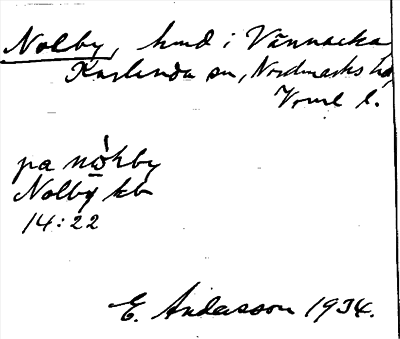 Nolby, hmd i Vännacka,
Karlanda sn, Nordmarks hd,
Värml l.
på nòhby
Nolby kb
14:22
E. Andersson 1934.